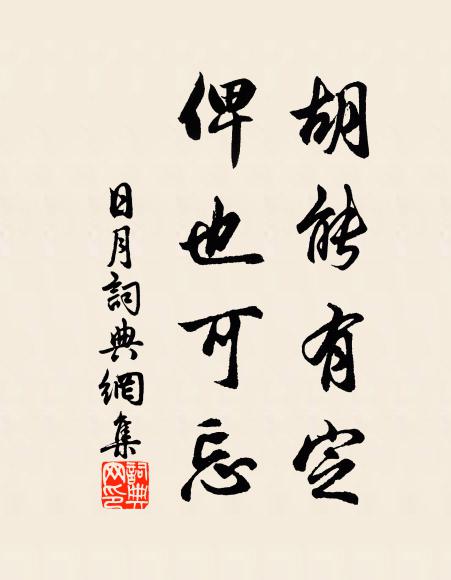 胡能有定
俾也可忘
日月詞典網集
詞典網印